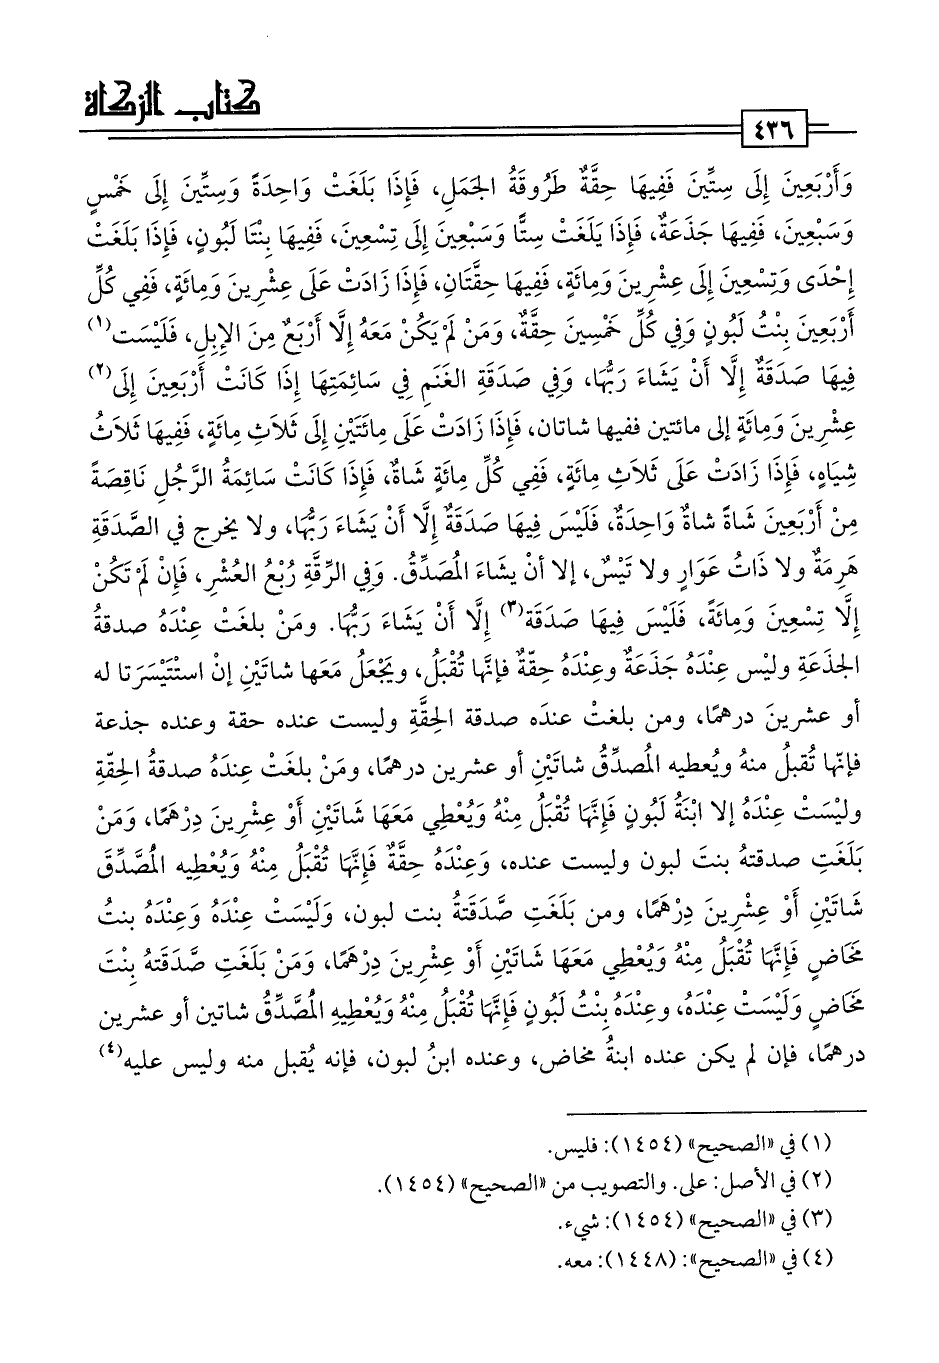 كتاب الزكاة
٤٣٦
وَأَرْبَعِينَ إِلَى سِتِّينَ فَفِيهَا حِقَّةٌ طَرُوقَةُ الجَمَلِ، فَإِذَا بَلَغَتْ وَاحِدَةً وَسِتِّينَ إِلَى خَمْسٍ
وَسَبْعِينَ، فَفِيهَا جَذَعَةٌ، فَإِذَا يَلَغَتْ سِتًّا وَسَبْعِينَ إِلَى تِسْعِينَ، فَفِيهَا بِنْتَا لَبُونٍ، فَإِذَا بَلَغَتْ
إِحْدَى وَتِسْعِينَ إِلَى عِشْرِينَ وَمِائَةٍ، فَفِيهَا حِقَّتَانِ، فَإِذَا زَادَتْ عَلَى عِشْرِينَ وَمِائَةٍ، فَفِي كُلِّ
أَرْبَعِينَ بِنْتُ لَبُونٍ وَفِي كُلِّ خَمْسِينَ حِقَّةٌ، وَمَنْ لَمْ يَكُنْ مَعَهُ إِلَّا أَرْبَعٌ مِنَ الإِبِلِ، فَلَيْسَت(١)
فِيهَا صَدَقَةٌ إِلَّا أَنْ يَشَاءَ رَبُّهَا، وَفِي صَدَقَةِ الغَنَمِ فِي سَائِمَتِهَا إِذَا كَانَتْ أَرْبَعِينَ إِلَى(٢)
عِشْرِينَ وَمِائَةٍ إلى مائتين ففيها شاتان، فَإِذَا زَادَتْ عَلَى مِائَتَيْنِ إِلَى ثَلاثِ مِائَةٍ، فَفِيهَا ثَلاثُ
شِيَاهٍ، فَإِذَا زَادَتْ عَلَى ثَلاثِ مِائَةٍ، فَفِي كُلِّ مِائَةٍ شَاةٌ، فَإِذَا كَانَتْ سَائِمَةُ الرَّجُلِ نَاقِصَةً
مِنْ أَرْبَعِينَ شَاةً شاةٌ وَاحِدَةٌ، فَلَيْسَ فِيهَا صَدَقَةٌ إِلَّا أَنْ يَشَاءَ رَبُّهَا، ولا يخرج في الصَّدَقَةِ
هَرِمَةٌ ولا ذَاتُ عَوَارٍ ولا تَيْسٌ، إلا أنْ يشاءَ المُصَدِّقُ. وَفِي الرِّقَّةِ رُبْعُ العُشْرِ، فَإِنْ لَمْ تَكُنْ
إِلَّا تِسْعِينَ وَمِائَةً، فَلَيْسَ فِيهَا صَدَقَة(٣) إِلَّا أَنْ يَشَاءَ رَبُّهَا. ومَنْ بلغتْ عِنْدَهُ صدقةُ
الجذَعَةِ وليْس عِنْدَهُ جَذَعَةٌ وعِنْدَهُ حِقّةٌ فإنَّها تُقْبَلُ، ويَجْعَلُ مَعَها شاتَيْنِ إنْ استَيْسَرَتا له
أو عشرينَ درهمًا، ومن بلغتْ عندَه صدقة الحِقَّةِ وليست عنده حقة وعنده جذعة
فإنّها تُقبلُ منهُ ويُعطيه المُصدِّقُ شاتَيْنِ أو عشرين درهمًا، ومَنْ بلغتْ عِندَهُ صدقةُ الحِقّةِ
وليْسَتْ عِنْدَهُ إلا ابْنَةُ لَبُونٍ فَإِنَّهَا تُقْبَلُ مِنْهُ وَيُعْطِي مَعَهَا شَاتَيْنِ أَوْ عِشْرِينَ دِرْهَمًا، وَمَنْ
بَلَغَتِ صدقتهُ بنتَ لبون وليست عنده، وَعِنْدَهُ حِقَّةٌ فَإِنَّهَا تُقْبَلُ مِنْهُ وَيُعْطِيه المُصَّدِّقَ
شَاتَيْنِ أَوْ عِشْرِينَ دِرْهَمًا، ومن بَلَغَتِ صَّدَقَتهُ بنت لبون، وَلَيْسَتْ عِنْدَهُ وَعِنْدَهُ بنتُ
مَخَاضٍ فَإِنَّهَا تُقْبَلُ مِنْهُ وَيُعْطِي مَعَهَا شَاتَيْنِ أَوْ عِشْرِينَ دِرْهَمًا، وَمَنْ بَلَغَتِ صَّدَقَتهُ بِنْتَ
مَخَاضٍ وَلَيْسَتْ عِنْدَهُ، وعِنْدَهُ بِنْتُ لَبُونٍ فَإِنَّهَا تُقْبَلُ مِنْهُ وَيُعْطِيهِ المُصَّدِّقُ شاتين أو عشرين
درهمًا، فإن لم يكن عنده ابنةُ مخاض، وعنده ابنُ لبون، فإنه يُقبل منه وليس عليه(٤)
(١) في «الصحيح» (١٤٥٤): فليس.
(٢) في الأصل: على. والتصويب من «الصحيح» (١٤٥٤).
(٣) في «الصحيح» (١٤٥٤): شيء.
(٤) في «الصحيح»: (١٤٤٨): معه.